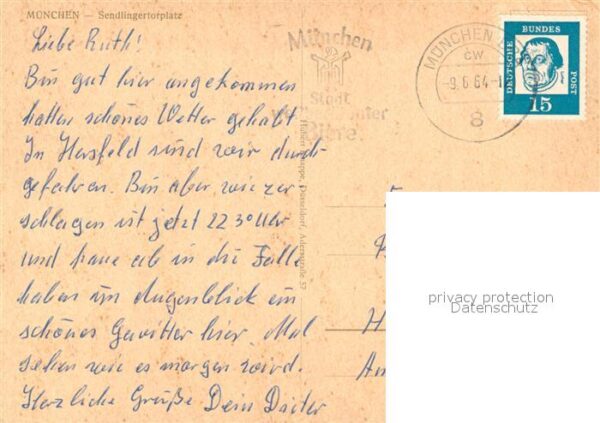 MÜNCHEN — Sendlingertorplatz
Liebe Ruth!
Bin gut hier angekommen
hatten schönes Wetter gehabt
In Hersfeld sind wir durch-
gefahren. Bin aber wie zer-
schlagen ist jetzt 22 30 Uhr
und haue ab in die Falle
haben im Augenblick ein
schönes Gewitter hier. Mal
sehen wie es morgen wird.
Herzliche Grüße Dein Dieter
Düsseldorf, Adersstraße 57
München
Stadt
Biere
MÜNCHEN
CW
-9.6.64-1
8
DEUTSCHE BUNDES POST
15
H
An
privacy protection
Datenschutz